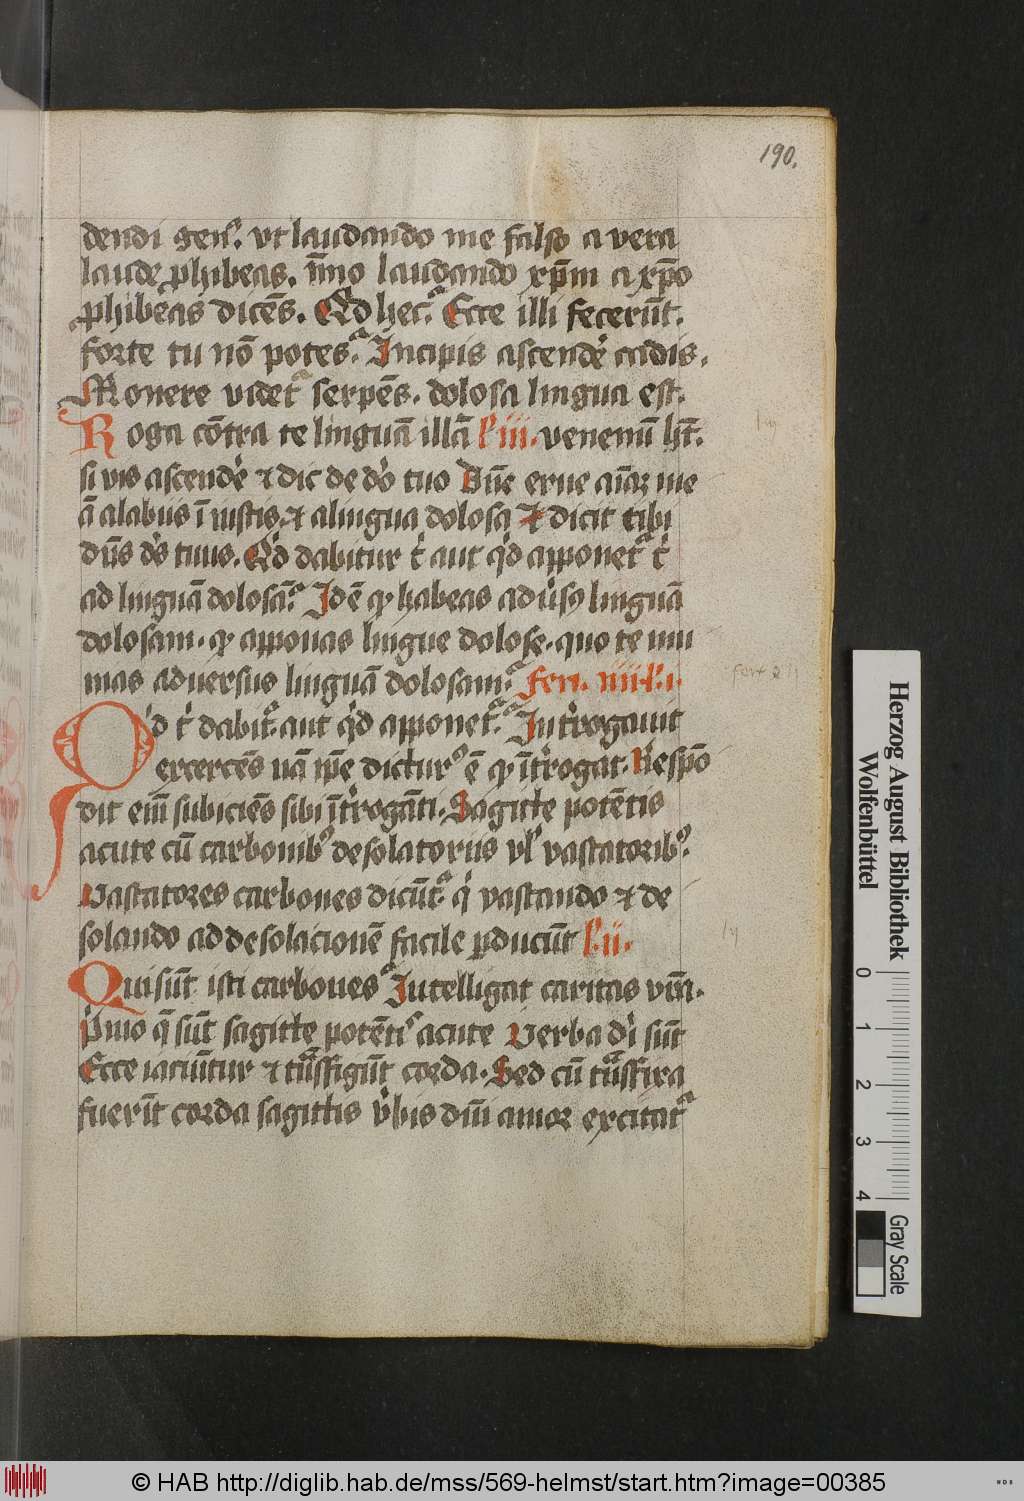 190.
dendi gens. vt laudando me falso a vera
laude ꝓhibeas. ȳmo laudando xp̄m a xp̄o
ꝓhibeas dicēs. Qd hec. Ecce illi fecerūt.
forte tu nō potes. Incipis ascendē cadis.
Monere videt serpēs. dolosa lingua est.
Roga cōtra te linguā illā l'iii. venenū h̄t.
si vis ascendē ⁊ dic de dō tuo Dn̄e erue aīaꝫ me
ā alabiis īiustis ⁊ alingua dolosa Et dicit tibi
dn̄s ds̄ tuus. Qd dabitur t aut qd apponet t
ad linguā dolosā. Idē ꝙ habeas aduersꝰ linguā
dolosam. ꝙ apponas lingue dolose. quo te mu
nias aduersus linguā dolosam. feri. iiii. l'. i.
Qd t dabit. aut qd apponet. Introgauit
exercēs nā ip̄e dicturꝰ ē ꝙ ītrogat. Respō
dit eni subiciēs sibi ītrogāti. Sagitte potētis
acute cū carbonibꝰ desolatoriis vl' vastatoribꝰ.
Vastatores carbones dicūt q vastando ⁊ de
solando ad desolacionē facile ꝑducūt l'. ii.
Qui sūt isti carbones Intelligat caritas vr̄a.
Pmo q̄ sūt sagitte potētis acute Verba di sūt
Ecce iaciūtur ⁊ trāsfigūt corda. Sed cū trāsfixa
fuerīt corda sagittis vbis dn̄i amor excitat
Herzog August Bibliothek
Wolfenbüttel
0 1 2 3 4
Gray Scale
© HAB http://diglib.hab.de/mss/569-helmst/start.htm?image=00385